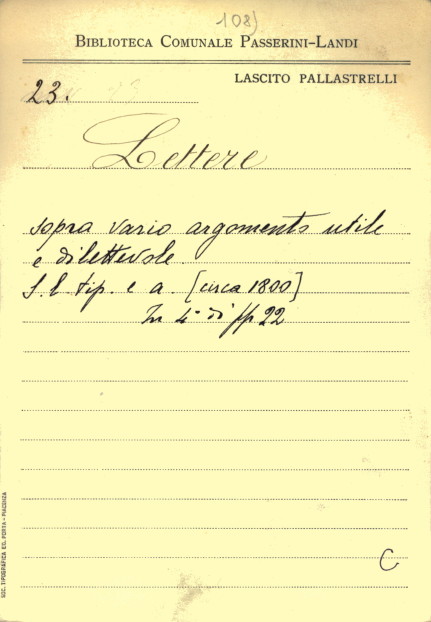 108)
BIBLIOTECA COMUNALE PASSERINI-LANDI
LASCITO PALLASTRELLI
23.
Lettere
sopra vario argomento utile
e dilettevole
S. l. tip. e a. [circa 1800]
In 4° di pp 22
C
SOC. TIPOGRAFICA ED. PORTA - PIACENZA